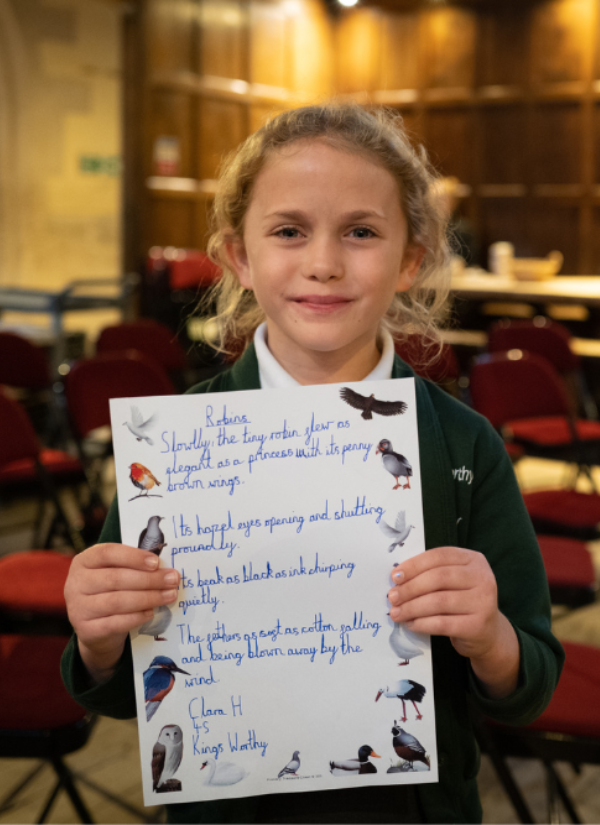 Robins
Slowlly, the tiny robin flew as
elegant as a princess with its penny
brown wings.
Its hazel eyes opening and shutting
proundly.
Its beak as black as ink chirping
quietly.
The fethers as soft as cotton falling
and being blown away by the
wind
Clara H
4S
Kings Worthy
rthy